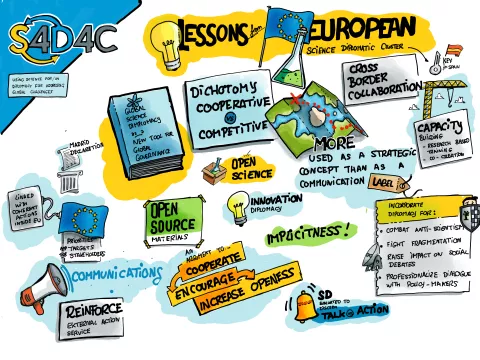 S4D4C
USING SCIENCE FOR/IN
DIPLOMACY FOR ADDRESSING
GLOBAL CHALLENGES
LESSONS from
EUROPEAN
SCIENCE DIPLOMATIC CLUSTER
CROSS
BORDER
COLLABORATION
KEY
GLOBAL
SCIENCE
DIPLOMACY
NEW TOOL FOR
GLOBAL
GOVERNANCE
DICHOTOMY
COOPERATIVE
VS
COMPETITIVE
CAPACITY
BUILDING
- RESEARCH BASED
- TRAINING
- CO-CREATION
MADRID
DECLARATION
OPEN
SCIENCE
MORE
USED AS A STRATEGIC
CONCEPT THAN AS A
COMMUNICATION LABEL
LINKED
WITH
CONCRETE
ACTIONS
INSIDE EU
PRIORITIES
TARGETS
STAKEHOLDERS
OPEN
SOURCE
MATERIALS
INNOVATION
DIPLOMACY
IMPLICITNESS!
INCORPORATE
DIPLOMACY FOR:
• COMBAT ANTI-SCIENTISM
• FIGHT FRAGMENTATION
• RAISE IMPACT ON SOCIAL
DEBATES
• PROFESSIONALIZE DIALOGUE
WITH POLICY-MAKERS
COMMUNICATIONS
AN ARGUMENT TO...
COOPERATE
ENCOURAGE
INCREASE OPENESS
REINFORCE
EXTERNAL ACTION
SERVICE
SD
TALK @ ACTION